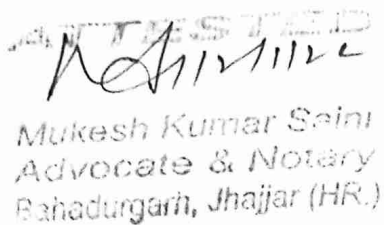 ATTESTED
Mukesh Kumar Saini
Advocate & Notary
Bahadurgarh, Jhajjar (HR.)